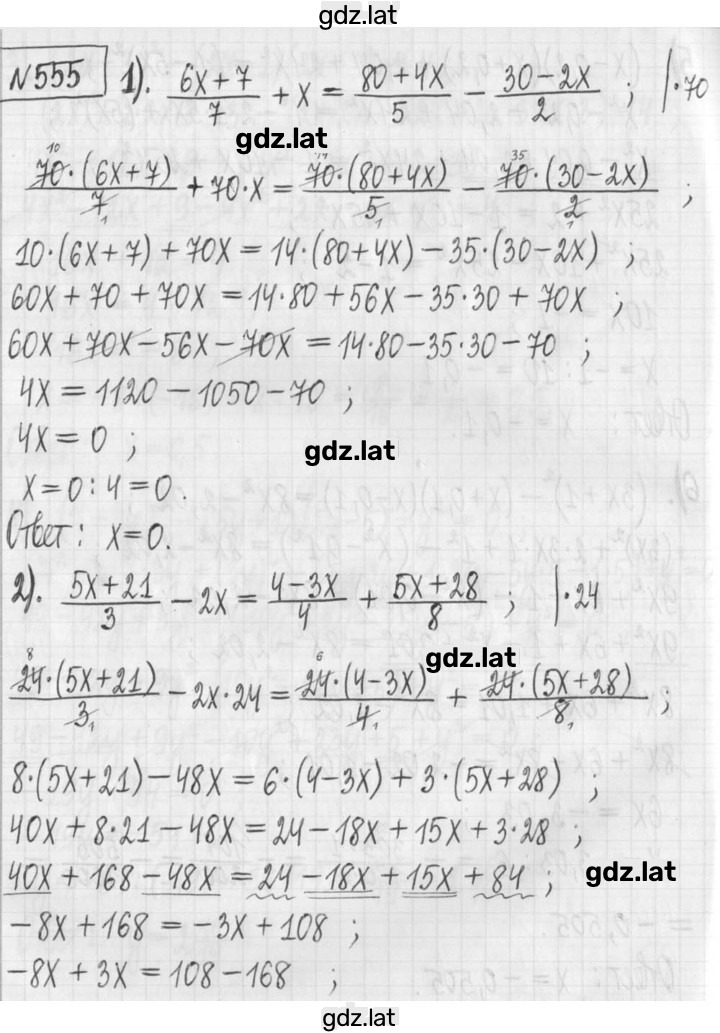 gdz.lat
N555 1). (6x+7)/7 + x = (80+4x)/5 − (30−2x)/2 ; |·70
gdz.lat
70·(6x+7)/7 + 70·x = 70·(80+4x)/5 − 70·(30−2x)/2 ;
10·(6x+7)+70x = 14·(80+4x)−35·(30−2x) ;
60x+70+70x = 14·80+56x−35·30+70x ;
60x+70x−56x−70x = 14·80−35·30−70 ;
4x = 1120−1050−70 ;
4x = 0 ;
gdz.lat
x = 0:4 = 0.
Ответ: x=0.
2). (5x+21)/3 − 2x = (4−3x)/4 + (5x+28)/8 ; |·24
gdz.lat
24·(5x+21)/3 − 2x·24 = 24·(4−3x)/4 + 24·(5x+28)/8 ;
8·(5x+21)−48x = 6·(4−3x)+3·(5x+28) ;
40x+8·21−48x = 24−18x+15x+3·28 ;
40x+168−48x = 24−18x+15x+84 ;
gdz.lat
−8x+168 = −3x+108 ;
−8x+3x = 108−168 ;
gdz.lat